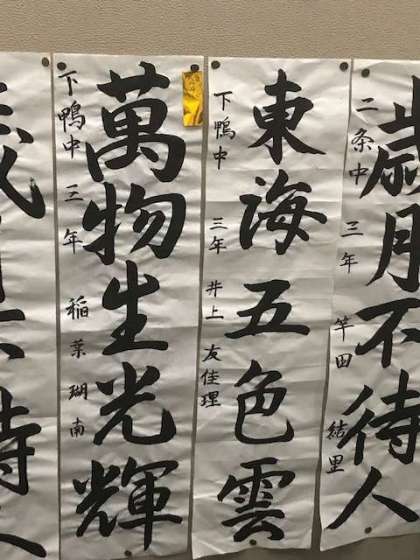 歳月不待人
二条中 三年 竿田 結里
東海五色雲
下鴨中 三年 井上 友佳理
萬物生光輝
下鴨中 三年 稲葉 瑚南